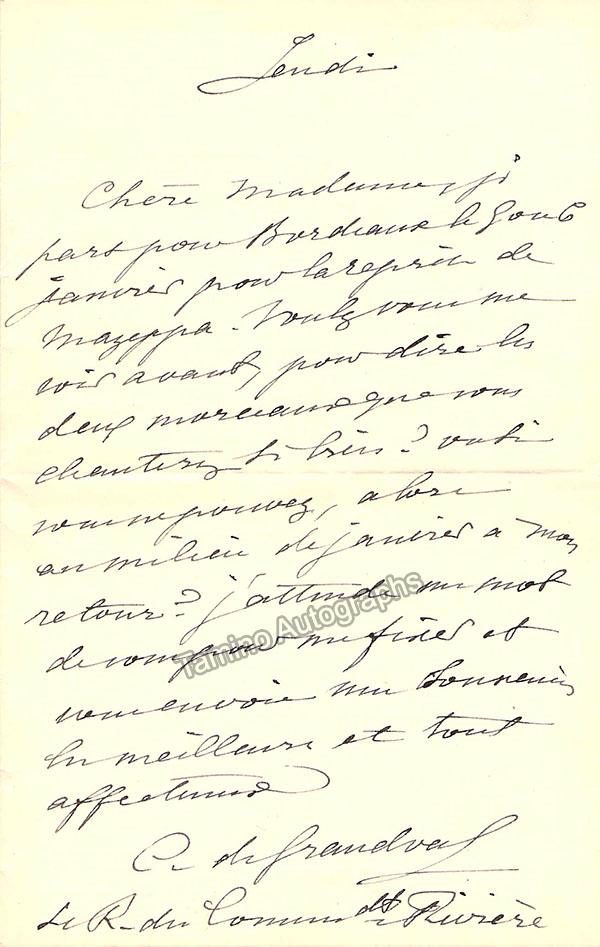 Jeudi
Chère Madame, je
pars pour Bordeaux le 5 ou 6
janvier pour la reprise de
Mazeppa. Voulez vous me
voir avant, pour dire les
deux morceaux que vous
chanterez si bien? ou si
vous ne pouvez, alors
au milieu de janvier à mon
retour? j'attends un mot
de vous pour me fixer et
vous envoie mes souvenirs
les meilleurs et tout
affectueux
C. de Grandval
R. du Commandt Rivière
Tamino Autographs